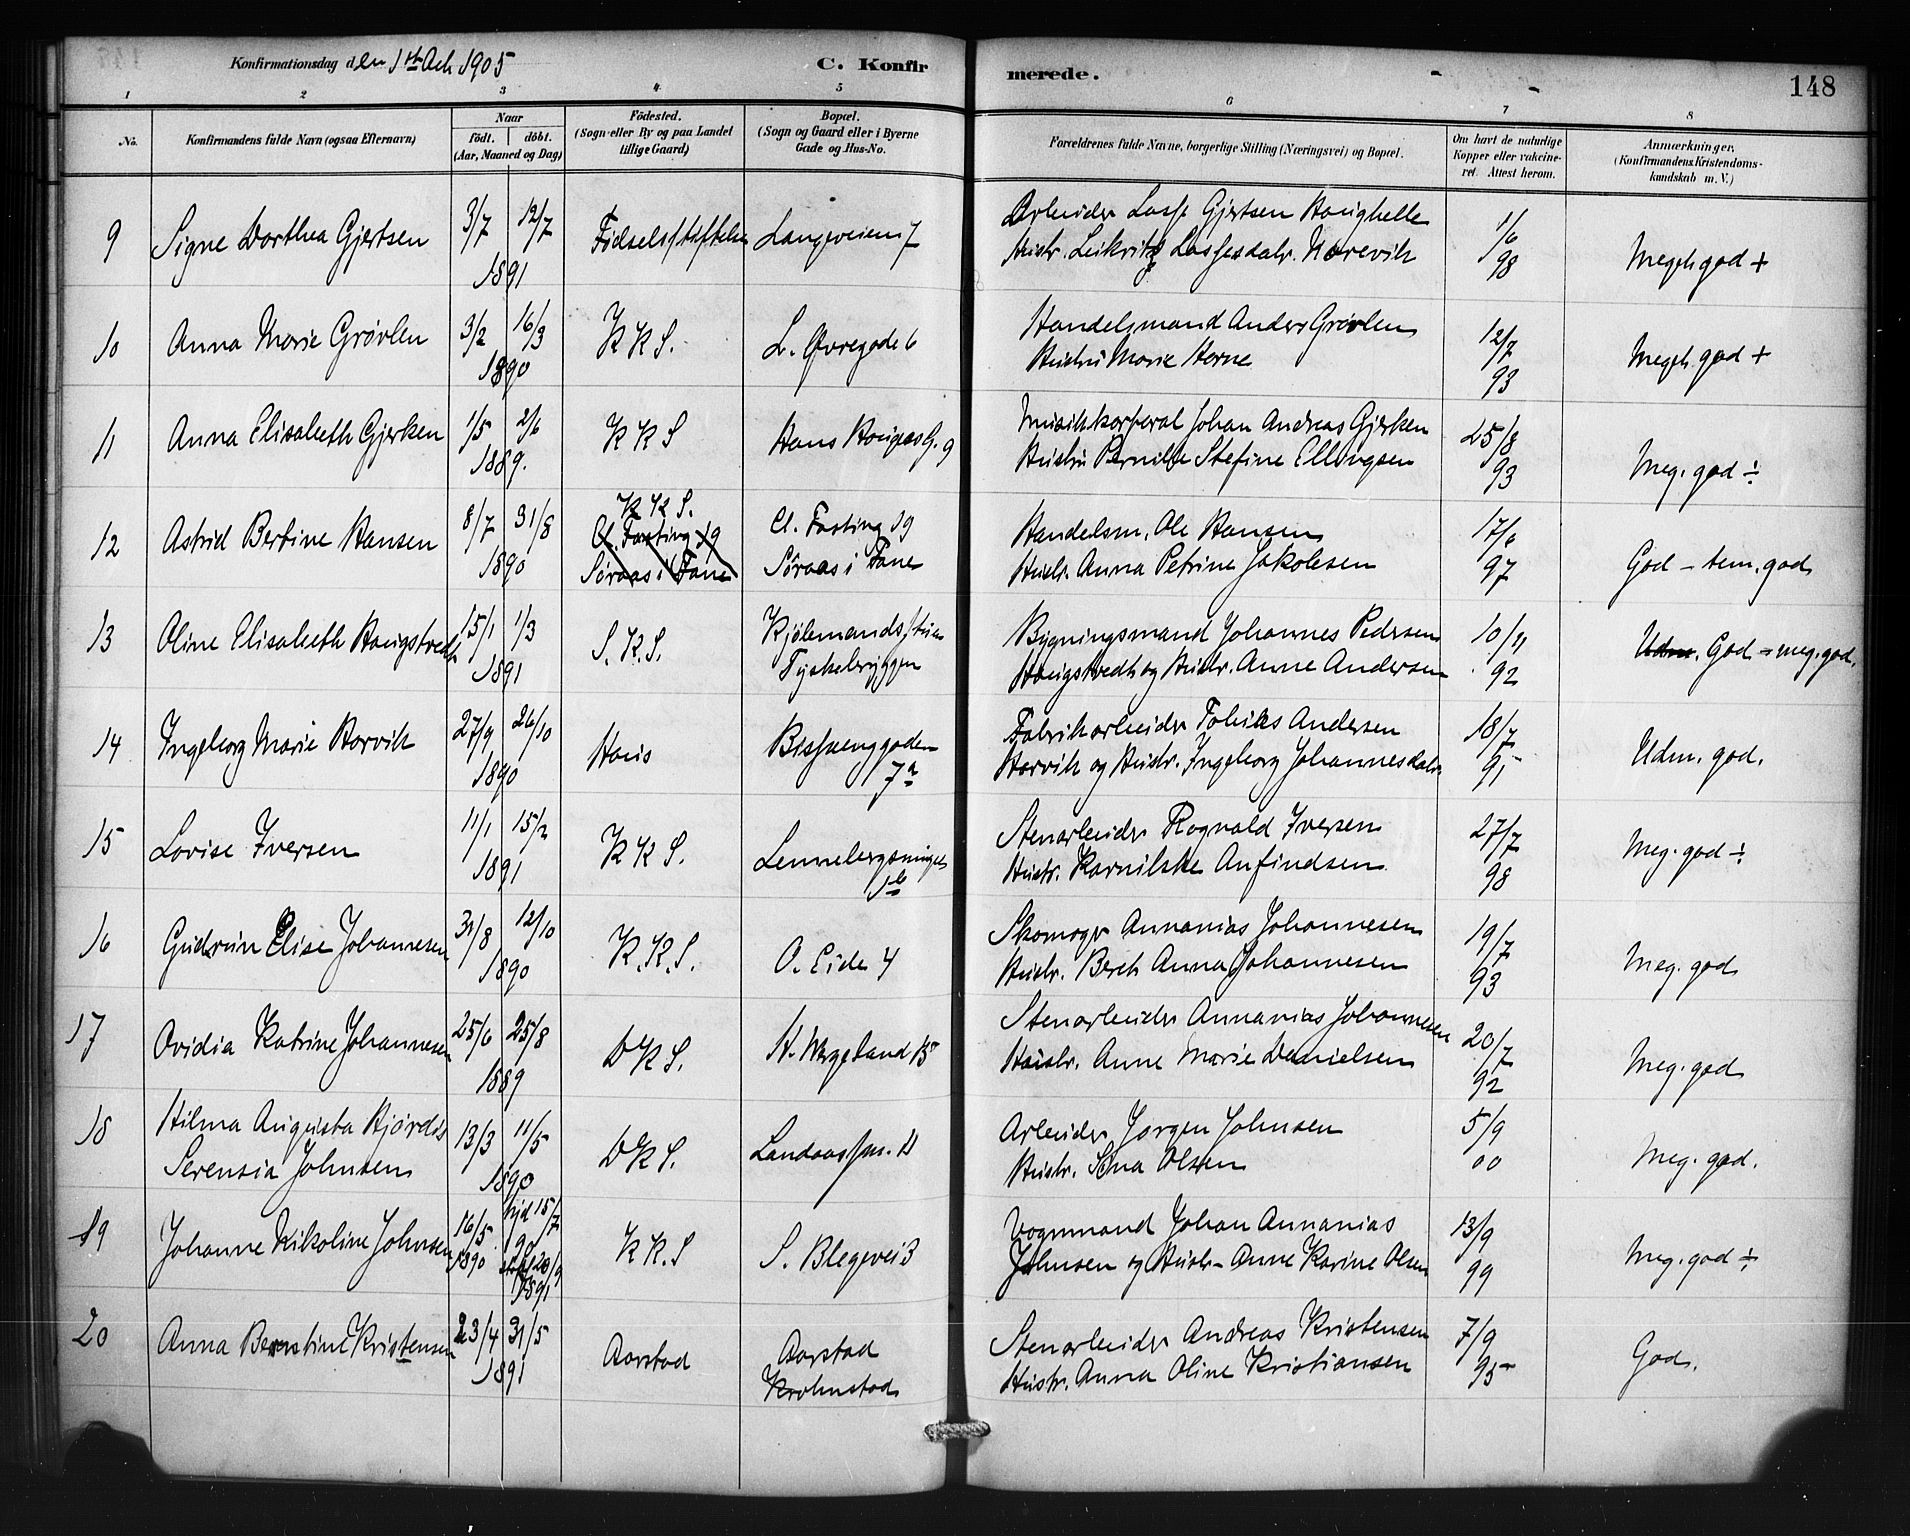 Konfirmationsdag den 1ste Oct 1905
C. Konfirmerede.
148
1 2 3 4 5 6 7 8
No.
Konfirmandens fulde Navn (ogsaa Efternavn)
Naar
født. døbt.
(Aar, Maaned og Dag)
Fødested.
(Sogn eller By og paa Landet
tillige Gaard)
Bopæl.
(Sogn og Gaard eller i Byerne
Gade og Hus-No.
Forældrenes fulde Navne, borgerlige Stilling (Næringsvei) og Bopæl.
Om havt de naturlige
Kopper eller vakcine-
ret. Attest herom.
Anmærkninger.
(Konfirmandens Kristendoms-
kundskab m. V.)
9 Signe Dorthea Gjertsen 3/7 12/7 1891 Fødselsstiftelsen Langeveien 7
Arbeider Lasse Gjertsen Haughelle
Hustr. Lassesdatr. Norevik
1/6 98 Meget god +
10 Anna Marie Grøvlen 3/2 16/3 1890 K K S. L. Øvregade 6
Handelsmand Anders Grøvlen
Hustru Marie Horne
12/7 93 Meget god +
11 Anna Elisabeth Gjerken 1/5 2/6 1889. K K S Hans Haugesg. 9
Musikkorporal Johan Andreas Gjerken
Hustru Pernille Stefine Ellingsen
25/8 93 Meg. god ÷
12 Astrid Bertine Hansen 8/7 31/8 1890 K K S.
Cl. Fasting 19
Søraas i Fane
Cl. Fasting 19
Søraas i Fane
Handelsm. Ole Hansen
Hustr. Anna Petrine Jakobsen
17/6 97 God – tem. god
13 Oline Elisabeth Haugstvedt 15/1 1/3 1891 S. K. S. Kjøbmandsstuen
Tyskebryggen
Bygningsmand Johannes Pedersen
Haugstvedt og Hustr. Anne Andersen
10/11 92 Udm. God – meg. god.
14 Ingeborg Marie Horvik 27/9 26/10 1890 Haus Bispenggaden
7a
Fabrikarbeider Tobias Andersen
Horvik og Hustr. Ingeborg Johannesdatr.
18/7 91 Udm. god.
15 Lovise Iversen 11/1 15/2 1891 K K S. 1b
Stenarbeider Rognald Iversen
Hustr. Anfindsen
27/7 98 Meg. god ÷
16 Gudrun Elise Johannesen 31/8 12/10 1890 K. K. S. O. Eide 4
Skomager Annanias Johannesen
Hustr. Anna Johannesen
19/7 93 Meg. god
17 Ovidia Katrine Johannesen 25/6 25/8 1889 D K S. H. Wergeland 15
Stenarbeider Annanias Johannesen
Hustr. Anne Marie Danielsen
20/7 92 Meg. god
18 Hilma Augusta Hjørdis
Serensia Johnsen 13/3 11/5 1890 D K S.
Arbeider Jørgen Johnsen
Hustr. Olsen
5/9 00 Meg. god.
19 Johanne Nikoline Johnsen 16/5 1890 hjd 15/7 90 20/9 1891 K K. S S. Blegevei 3
Vognmand Johan Annanias
Johnsen og Hustr. Anne Karine Olsen
13/9 99 Meg. god ÷
20 Anna Berntine Kristensen 23/4 31/5 1891 Aarstad Aarstad
Krohnstad
Stenarbeider Andreas Kristensen
Hustr. Anna Oline Kristiansen
7/9 95 God.